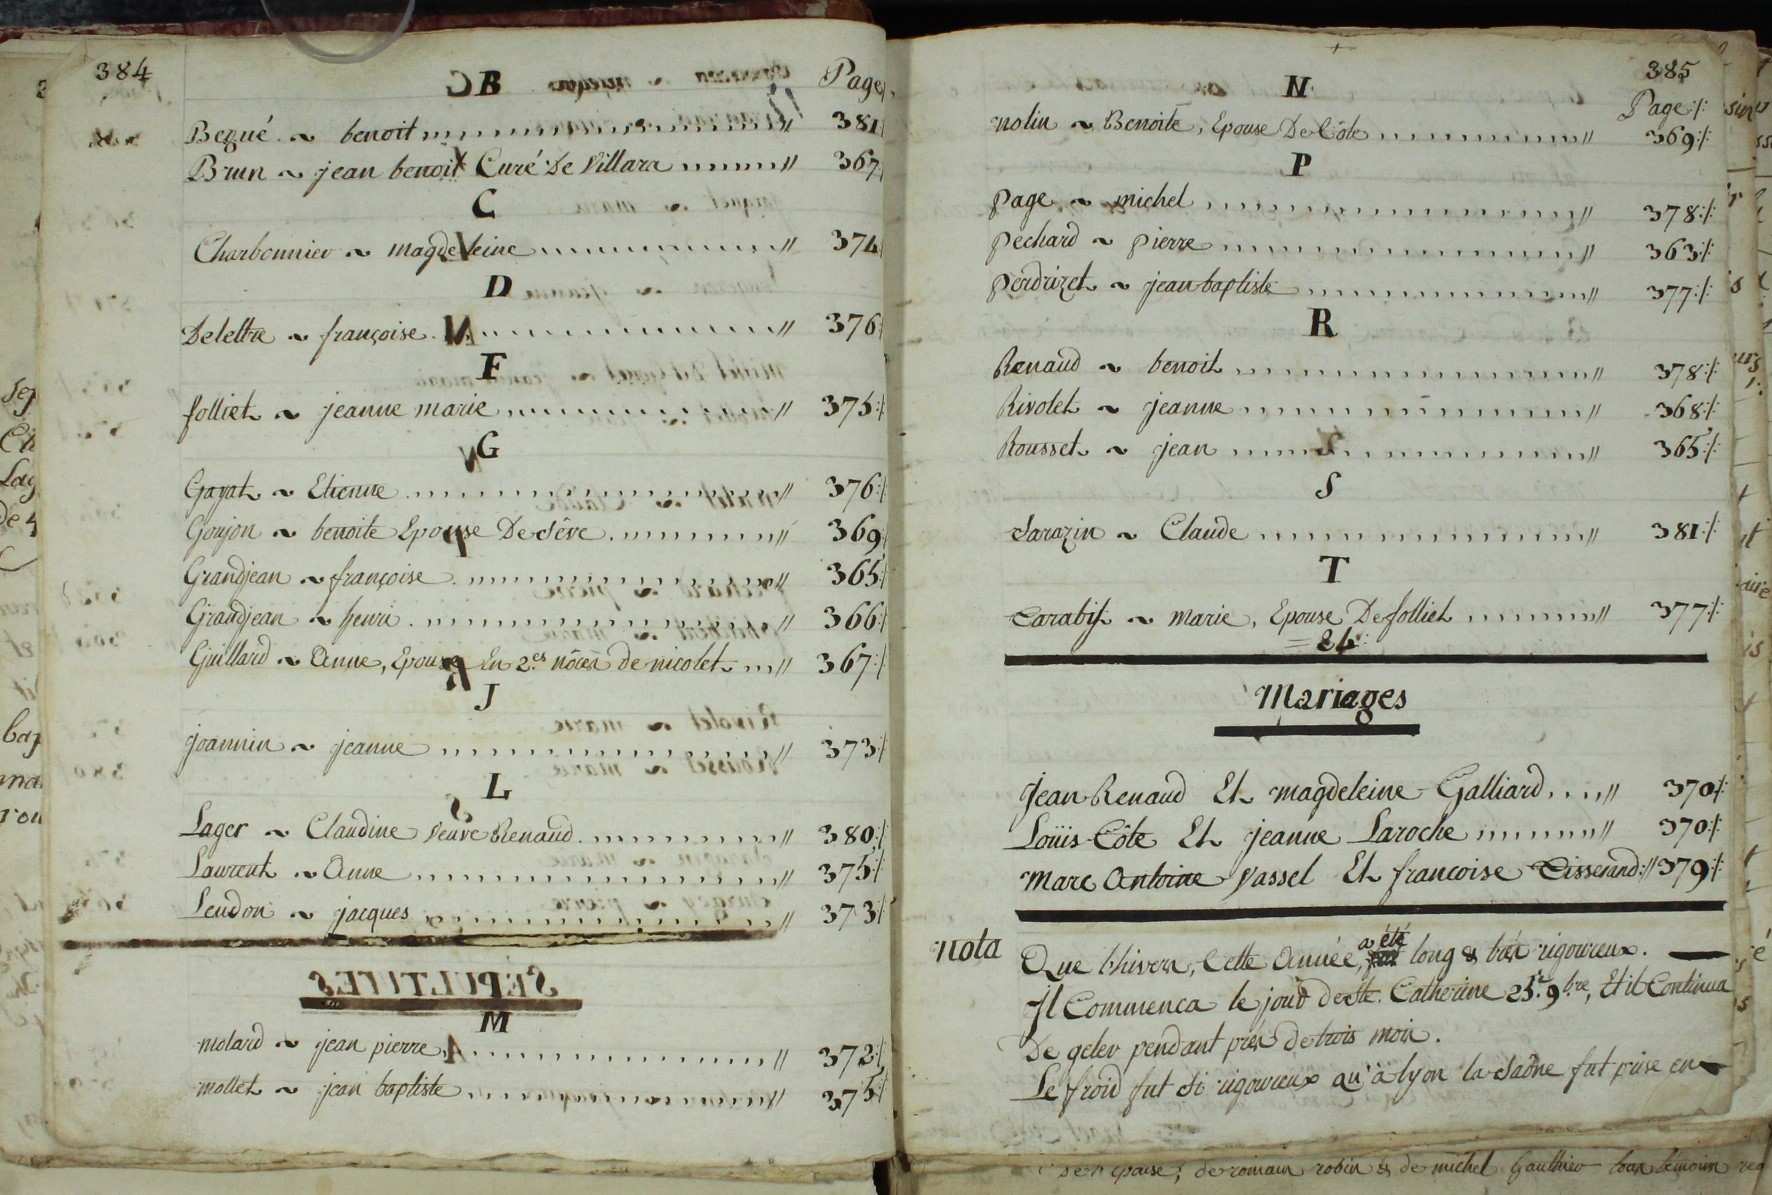 384
B
Page
Begué ~ benoit 381
Brun ~ jean benoit Curé De Villars 367
C
Charbonnier ~ magdeleine 374
D
Delettre ~ françoise 376
F
folliet ~ jeanne marie 375
G
Gayat ~ Etienne 376
Goujon ~ benoite Epouse De Sêve 369
Grandjean ~ françoise 365
Grandjean ~ henri 366
Guillard ~ Anne, Epouse En 2.es nôces de nicolet 367
J
joannin ~ jeanne 373
L
Lager ~ Claudine Veuve Renaud 380
Laurent ~ Anne 375
Leudon ~ jacques 373
M
molard ~ jean pierre 372
mollet ~ jean baptiste 375
385
N
Page
nolin ~ Benoite, Epouse De Côte 369
P
page ~ michel 378
pechard ~ pierre 363
perdrizet ~ jean baptiste 377
R
Renaud ~ benoit 378
Rivolet ~ jeanne 368
Rousset ~ jean 365
S
Sarazin ~ Claude 381
T
~ marie, Epouse De folliet 377
= 24
Mariages
Jean Renaud Et magdeleine Galliard 370
Loüis Côte Et jeanne Laroche 370
Marc Antoine Vassel Et francoise Tisserand 379
nota Que l'hiver, Cette Année, a été long & bien rigoureux.
Il Commença le jour de Ste. Catherine 25.e 9.bre, Et il Continua
De geler pendant près de trois mois.
Le froid fut si rigoureux qu'à lyon la Saône fut prise en
epouse, de romain robin & de michel Gauthier tous temoins